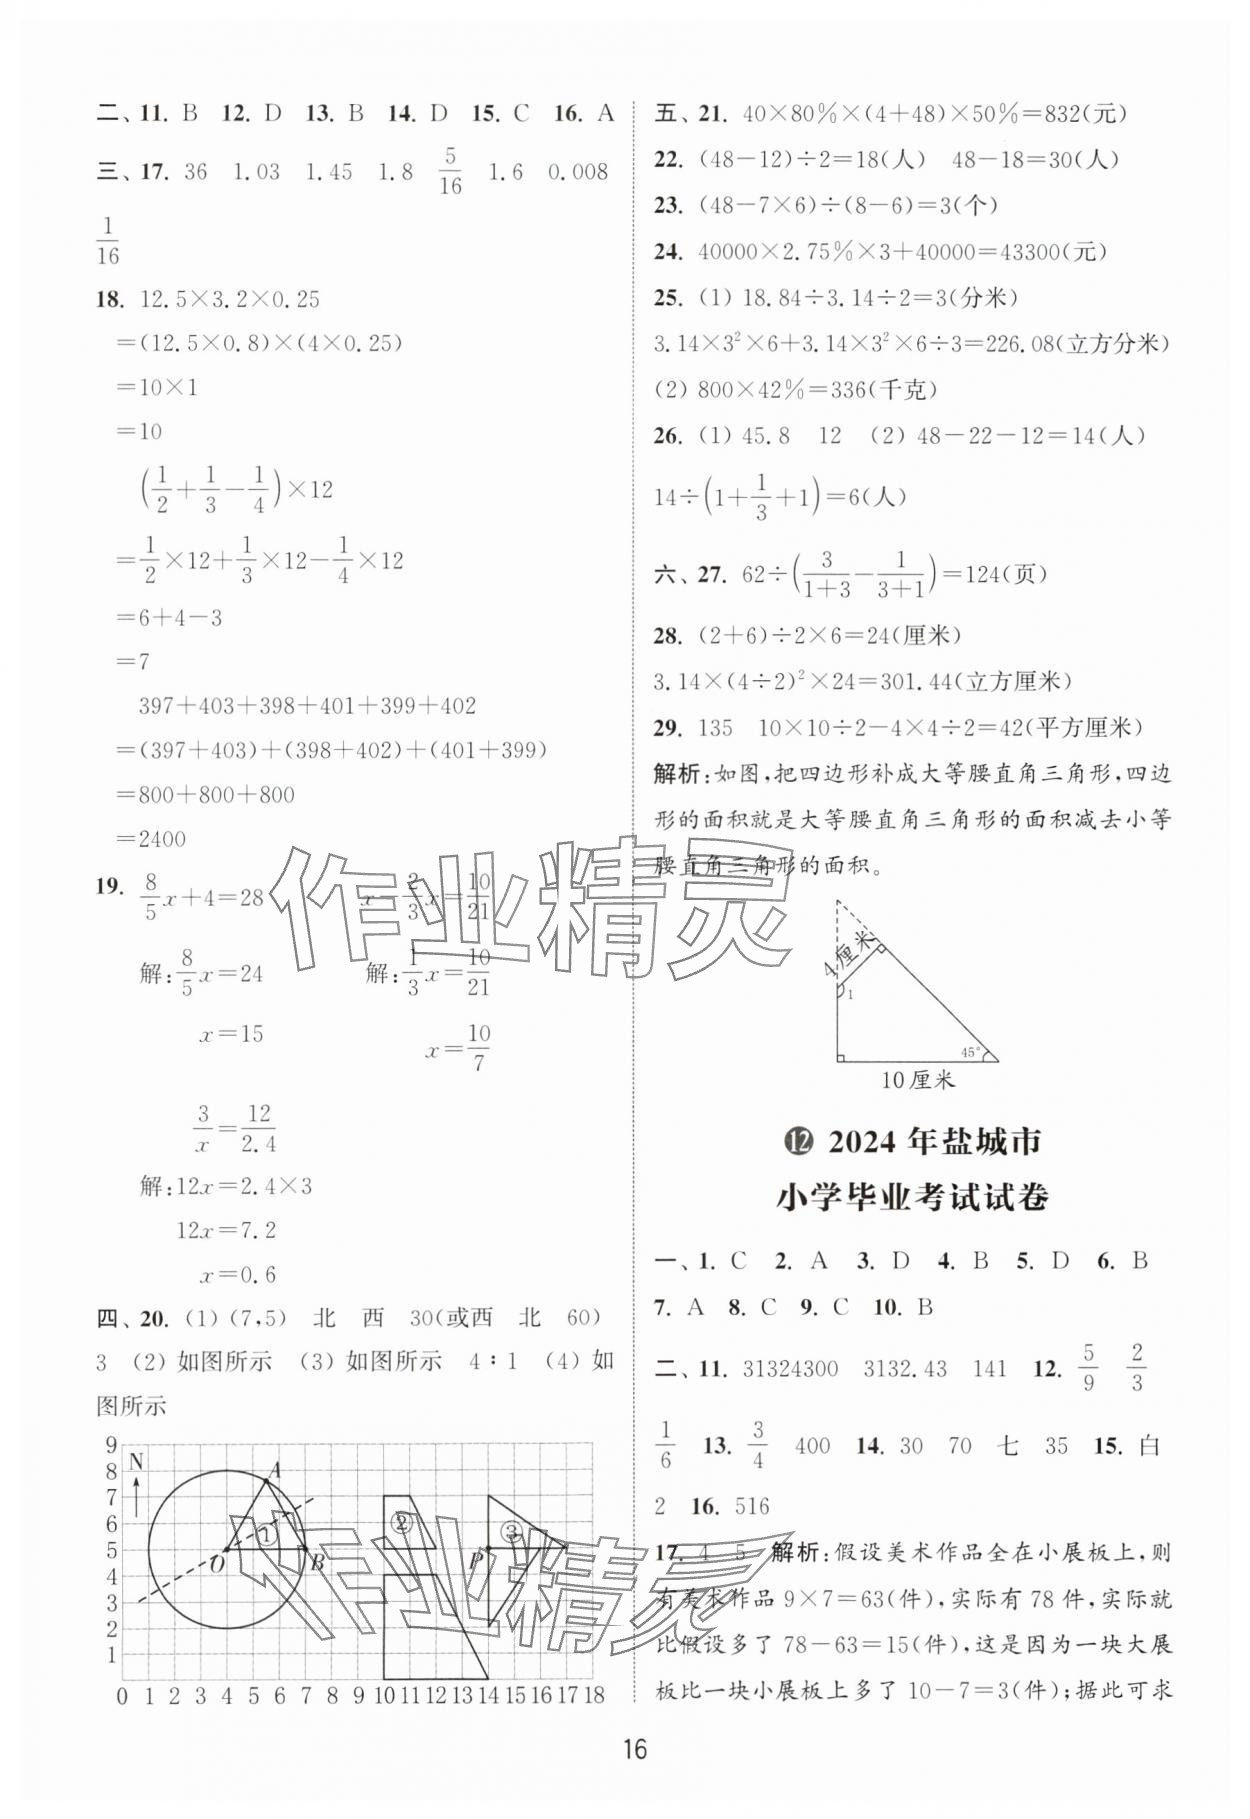 二、11. B 12. D 13. B 14. D 15. C 16. A
三、17. 36 1.03 1.45 1.8 5/16 1.6 0.008
1/16
18. 12.5×3.2×0.25
=(12.5×0.8)×(4×0.25)
=10×1
=10
(1/2+1/3-1/4)×12
=1/2×12+1/3×12-1/4×12
=6+4-3
=7
397+403+398+401+399+402
=(397+403)+(398+402)+(401+399)
=800+800+800
=2400
19. 8/5x+4=28 x-2/3x=10/21
解:8/5x=24 解:1/3x=10/21
x=15 x=10/7
3/x=12/2.4
解:12x=2.4×3
12x=7.2
x=0.6
四、20. (1)(7,5) 北 西 30(或西 北 60)
3 (2)如图所示 (3)如图所示 4∶1 (4)如
图所示
9
8 N A
7
6 ① ② ③
5 O B P
4
3
2
1
0 1 2 3 4 5 6 7 8 9 10 11 12 13 14 15 16 17 18
五、21. 40×80%×(4+48)×50%=832(元)
22. (48-12)÷2=18(人) 48-18=30(人)
23. (48-7×6)÷(8-6)=3(个)
24. 40000×2.75%×3+40000=43300(元)
25. (1) 18.84÷3.14÷2=3(分米)
3.14×3²×6+3.14×3²×6÷3=226.08(立方分米)
(2) 800×42%=336(千克)
26. (1) 45.8 12 (2) 48-22-12=14(人)
14÷(1+1/3+1)=6(人)
六、27. 62÷(3/(1+3)-1/(3+1))=124(页)
28. (2+6)÷2×6=24(厘米)
3.14×(4÷2)²×24=301.44(立方厘米)
29. 135 10×10÷2-4×4÷2=42(平方厘米)
解析:如图,把四边形补成大等腰直角三角形,四边
形的面积就是大等腰直角三角形的面积减去小等
腰直角三角形的面积。
4厘米
1
45°
10厘米
⓬ 2024年盐城市
小学毕业考试试卷
一、1. C 2. A 3. D 4. B 5. D 6. B
7. A 8. C 9. C 10. B
二、11. 31324300 3132.43 141 12. 5/9 2/3
1/6 13. 3/4 400 14. 30 70 七 35 15. 白
2 16. 516
17. 4 5 解析:假设美术作品全在小展板上,则
有美术作品9×7=63(件),实际有78件,实际就
比假设多了78-63=15(件),这是因为一块大展
板比一块小展板上多了10-7=3(件);据此可求
16
作业精灵
作业精灵